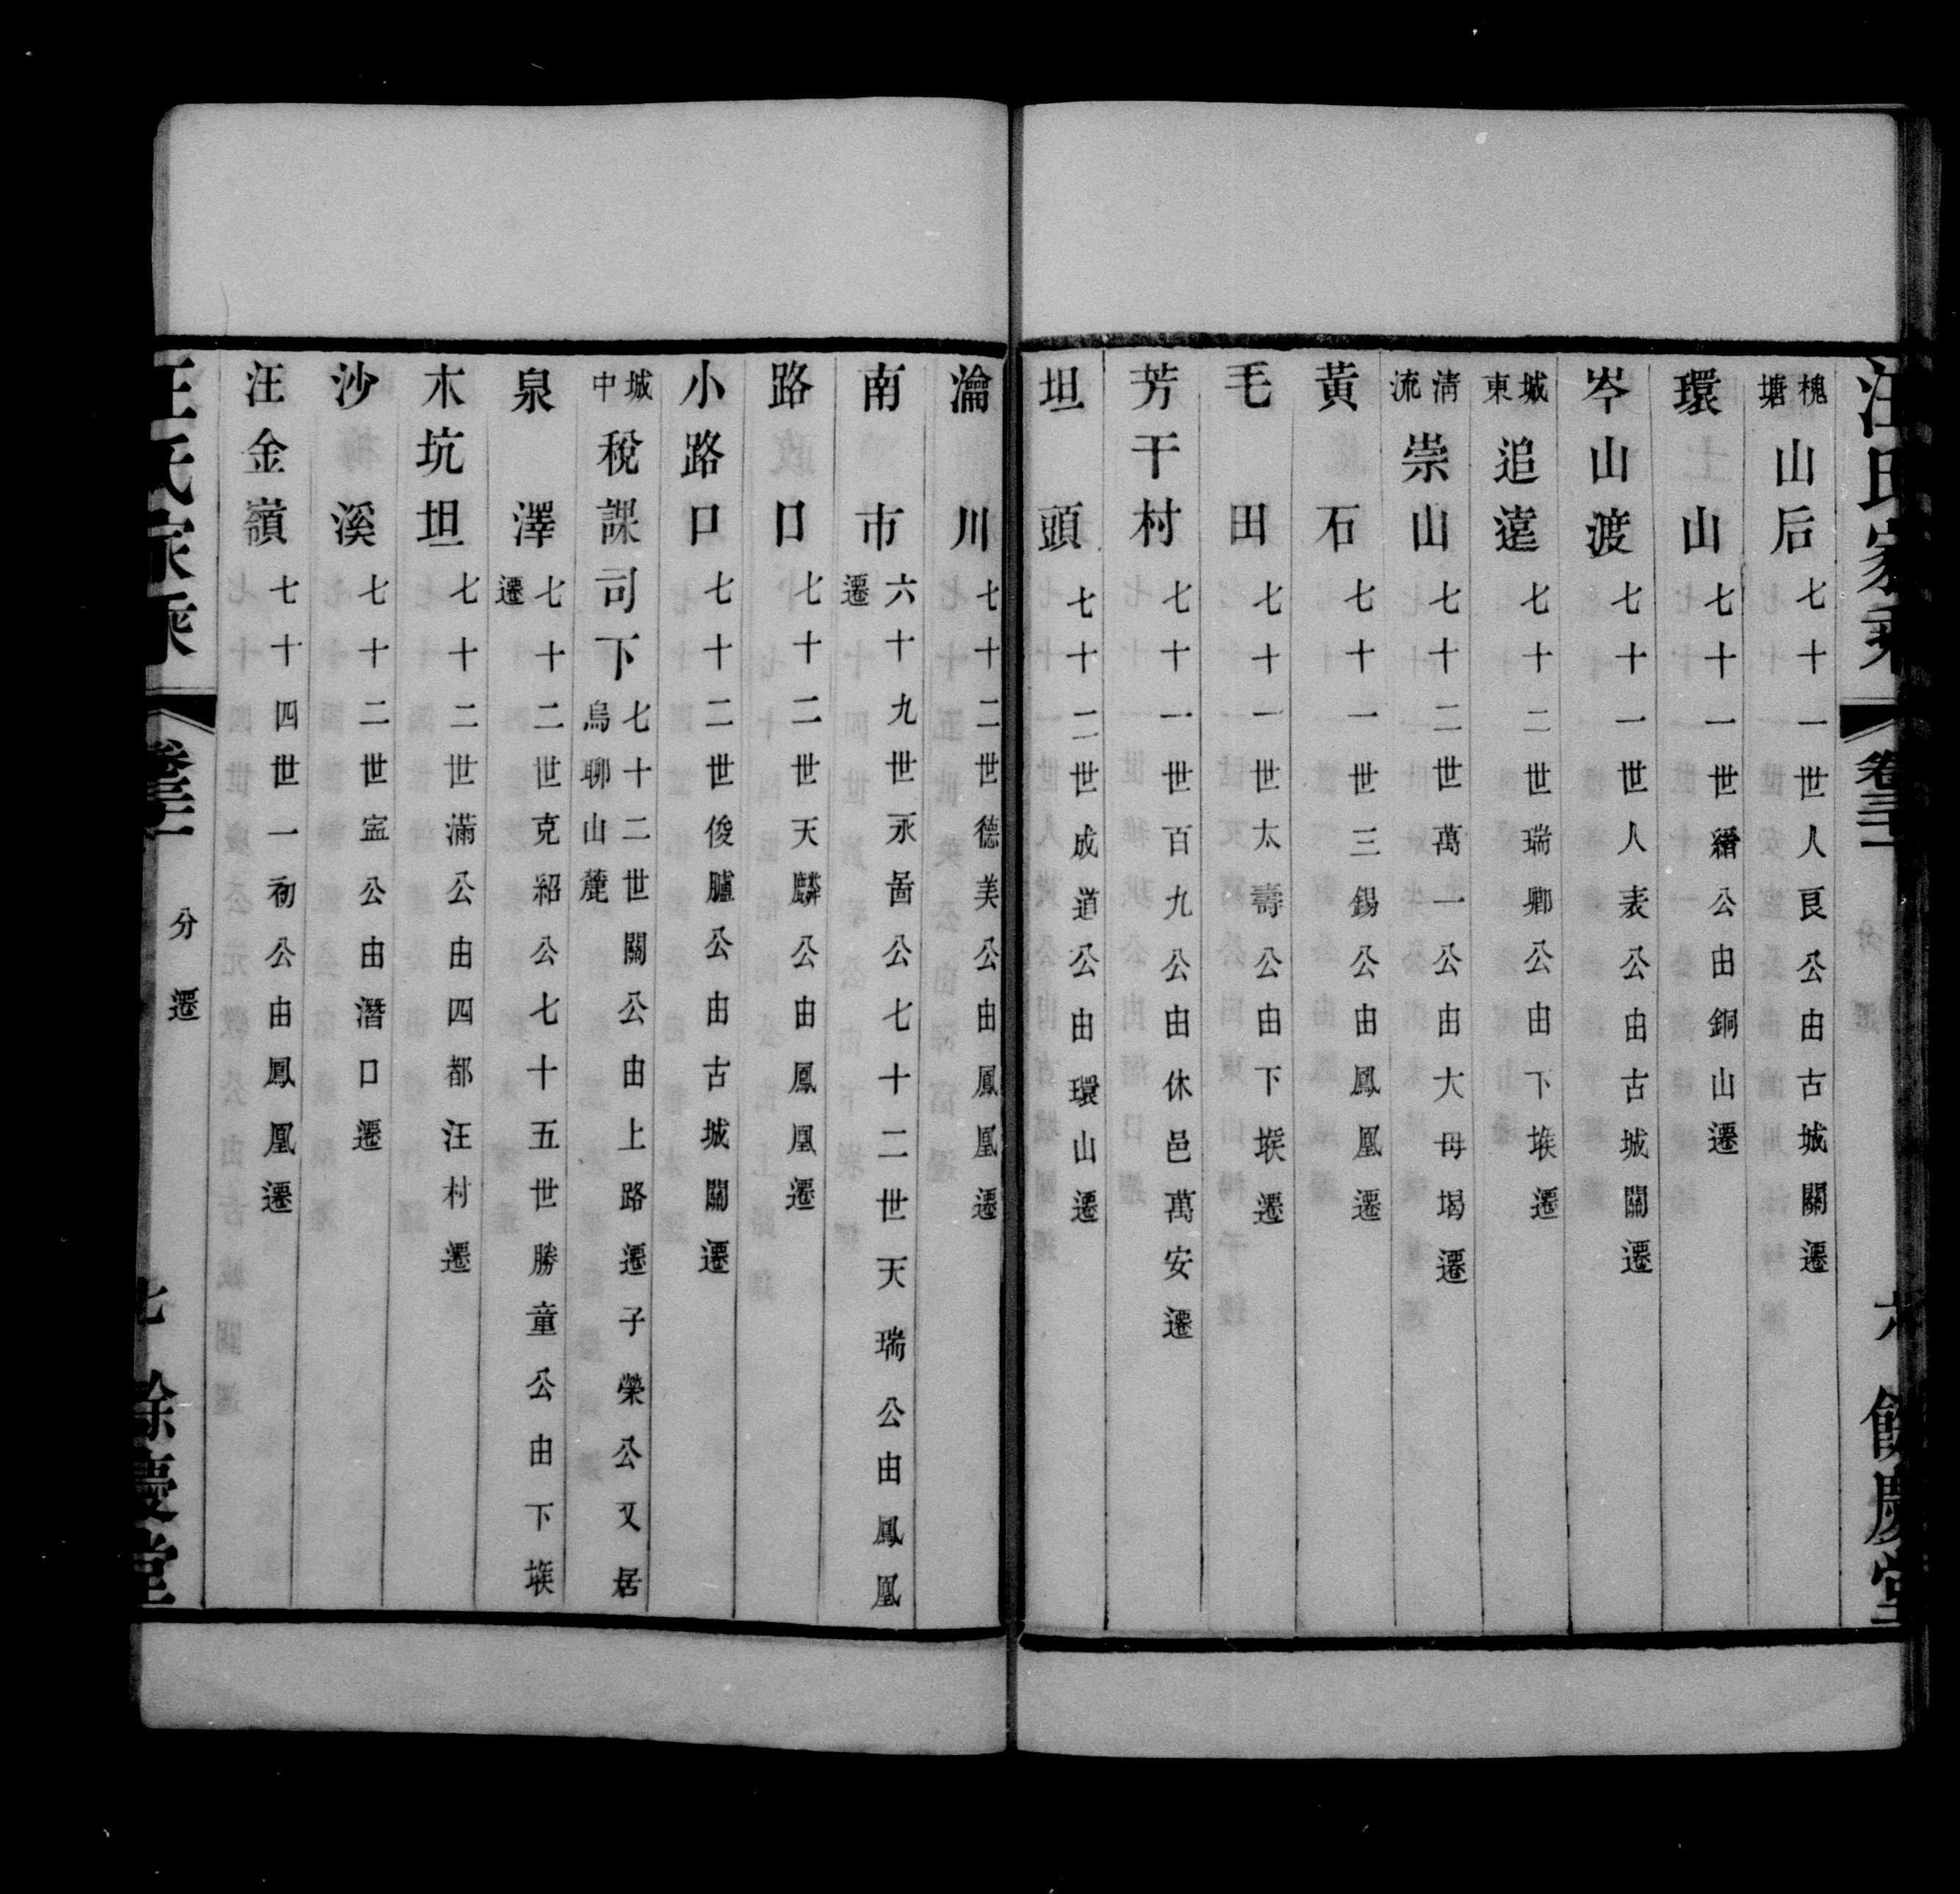 汪氏家乘 卷三十一 六 餘慶堂
槐塘 山后 七十一世人良公由古城關遷
環山 七十一世縉公由銅山遷
岑山渡 七十一世人表公由古城關遷
城東 追遠 七十二世瑞卿公由下堠遷
清流 崇山 七十二世萬一公由大母堨遷
黃石 七十一世三錫公由鳳凰遷
毛田 七十一世太壽公由下堠遷
芳干村 七十一世百九公由休邑萬安遷
坦頭 七十二世成道公由環山遷
瀹川 七十二世德美公由鳳凰遷
南市 六十九世永啚公七十二世天瑞公由鳳凰遷
路口 七十二世天麟公由鳳凰遷
小路口 七十二世俊臚公由古城關遷
城中 稅課司下 七十二世關公由上路遷子榮公又居烏聊山麓
泉澤 七十二世克紹公七十五世勝童公由下堠遷
木坑坦 七十二世滿公由四都汪村遷
沙溪 七十二世寍公由潛口遷
汪金嶺 七十四世一初公由鳳凰遷
汪氏家乘 卷三十一 分遷 七 餘慶堂